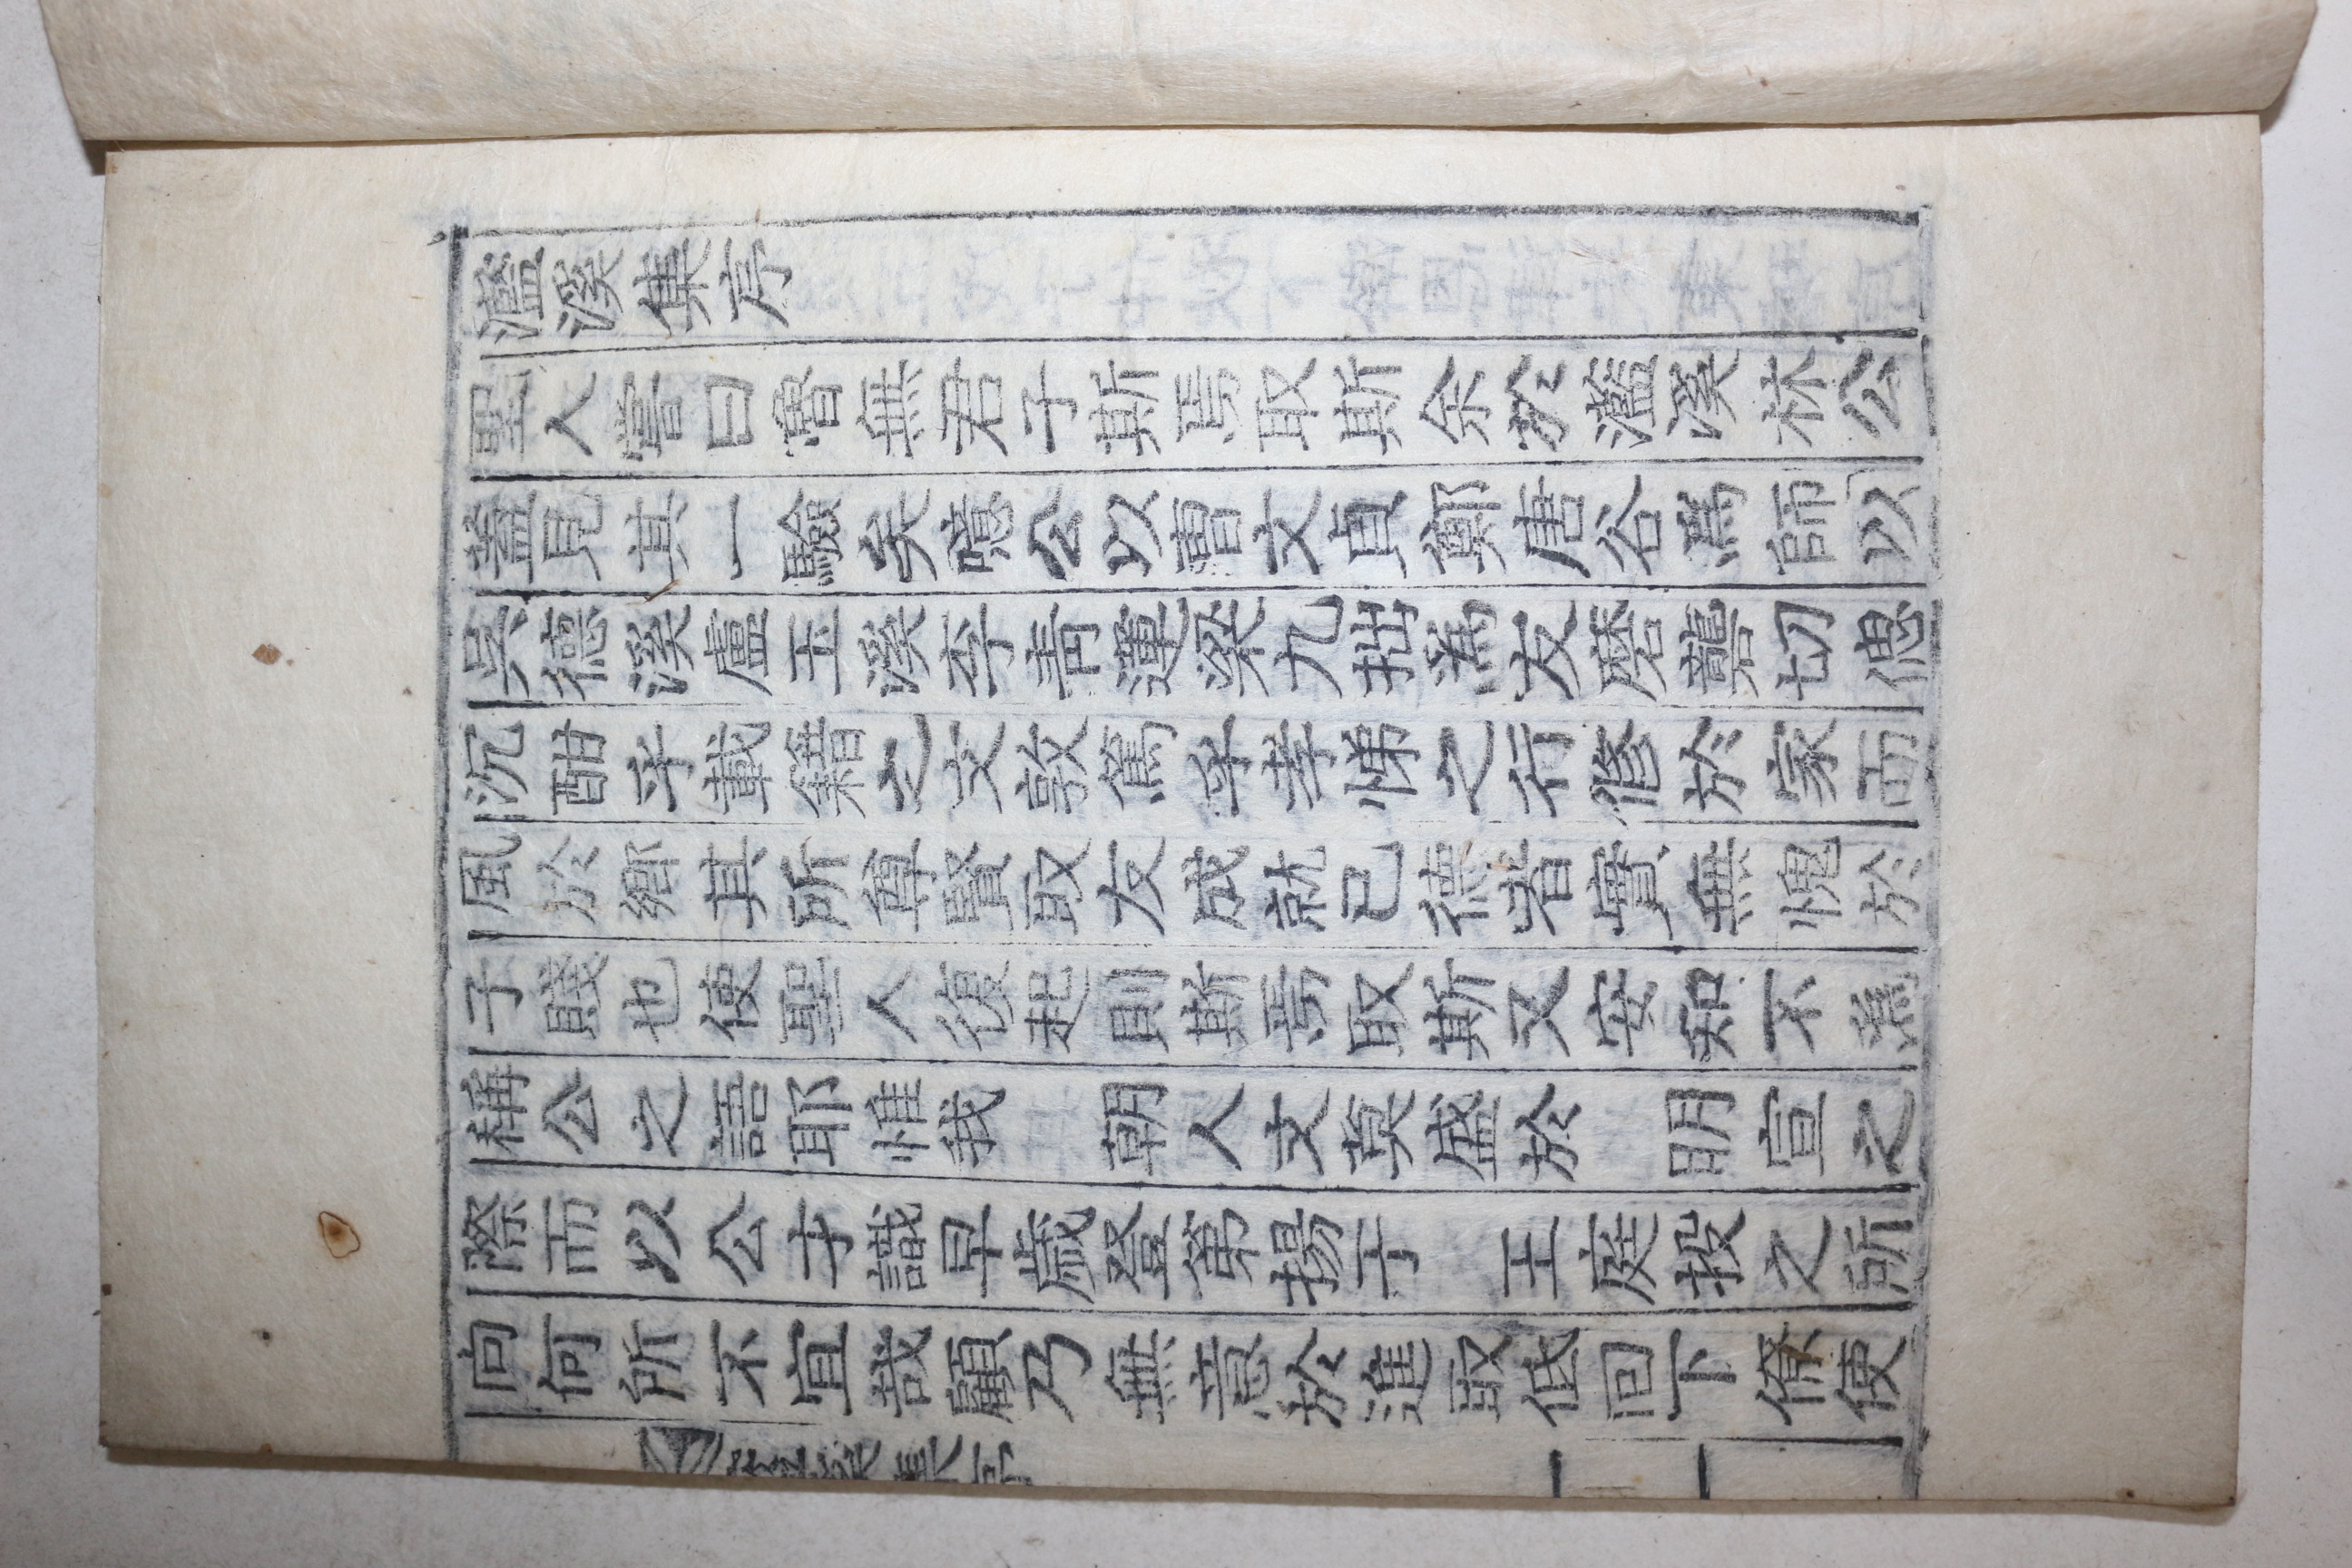 濫溪集序
里人嘗曰魯無君子斯焉取斯余於濫溪林公
蓋見其一驗矣噫公以曺文貞鄭唐谷爲師以
吳德溪盧玉溪李靑蓮梁九拙爲友磨礱切偲
沉酣乎載籍之文敦篤乎孝悌之行修於家而
風於鄕其所尊賢取友成就己德者實無愧於
子賤也使聖人復起則斯焉取斯又安知不爲
稱公之語耶惟我 朝人文莫盛於 明宣之
際而以公才識早歲登第揚于 王庭投之所
向何所不宜哉顧乃無意於進取低回下僚使
濫溪集序